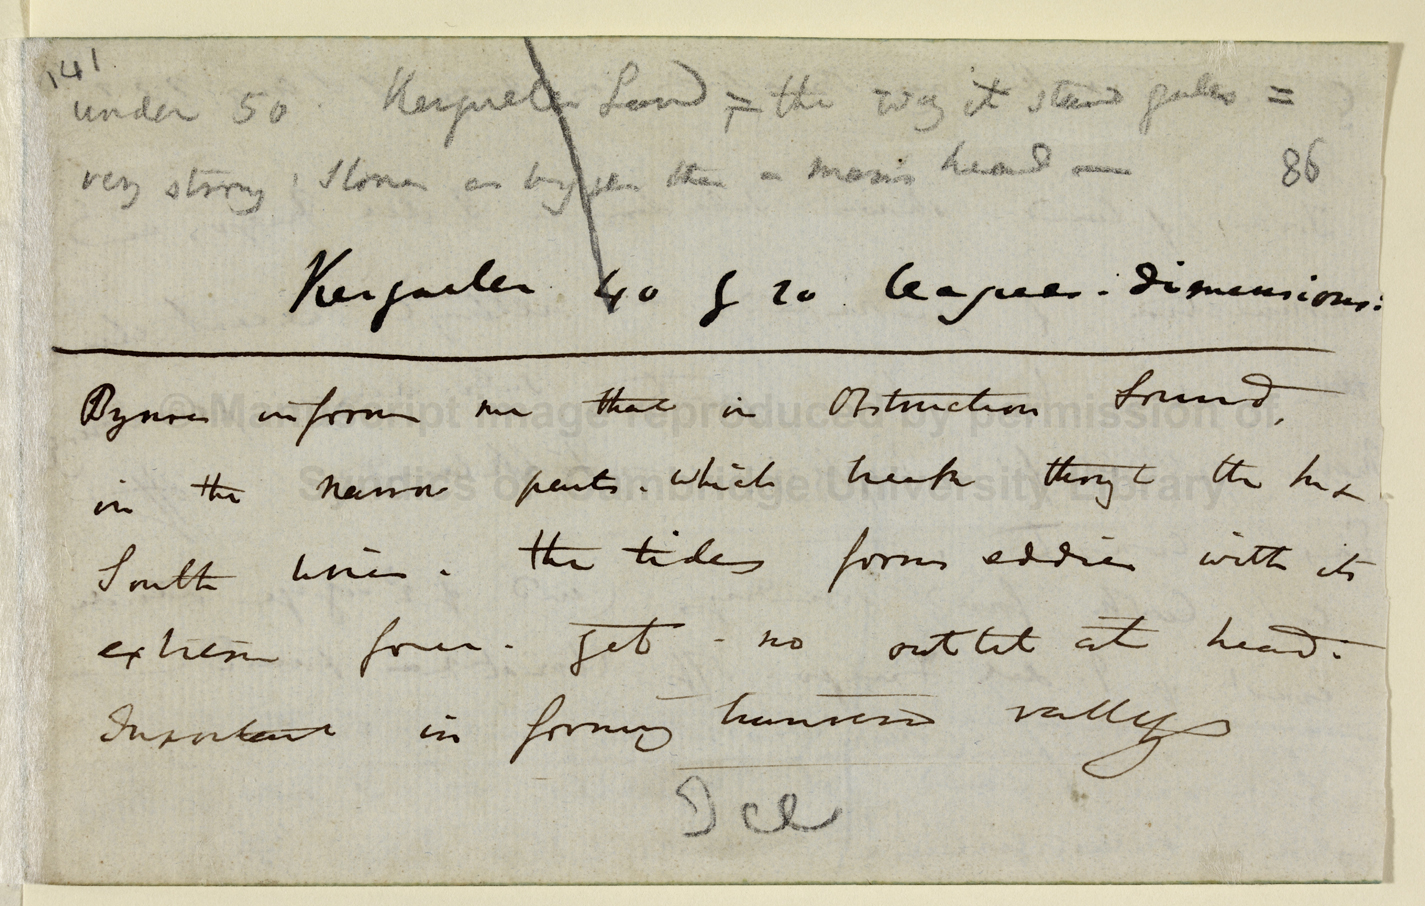 141
under 50. Kerguelen Land, = the way it stand gales =
very strong, stones as bigger than a man's head — 86
Kerguelen 40 & 20 leagues. dimensions:
Bynoe informs me that in Obstruction Sound,
in the narrow parts. which break through the N &
South lines. the tides form eddies with its
extreme force. yet - no outlet at head:
Important in forming transverse valleys
© Manuscript image reproduced by permission of
Syndics of Cambridge University Library